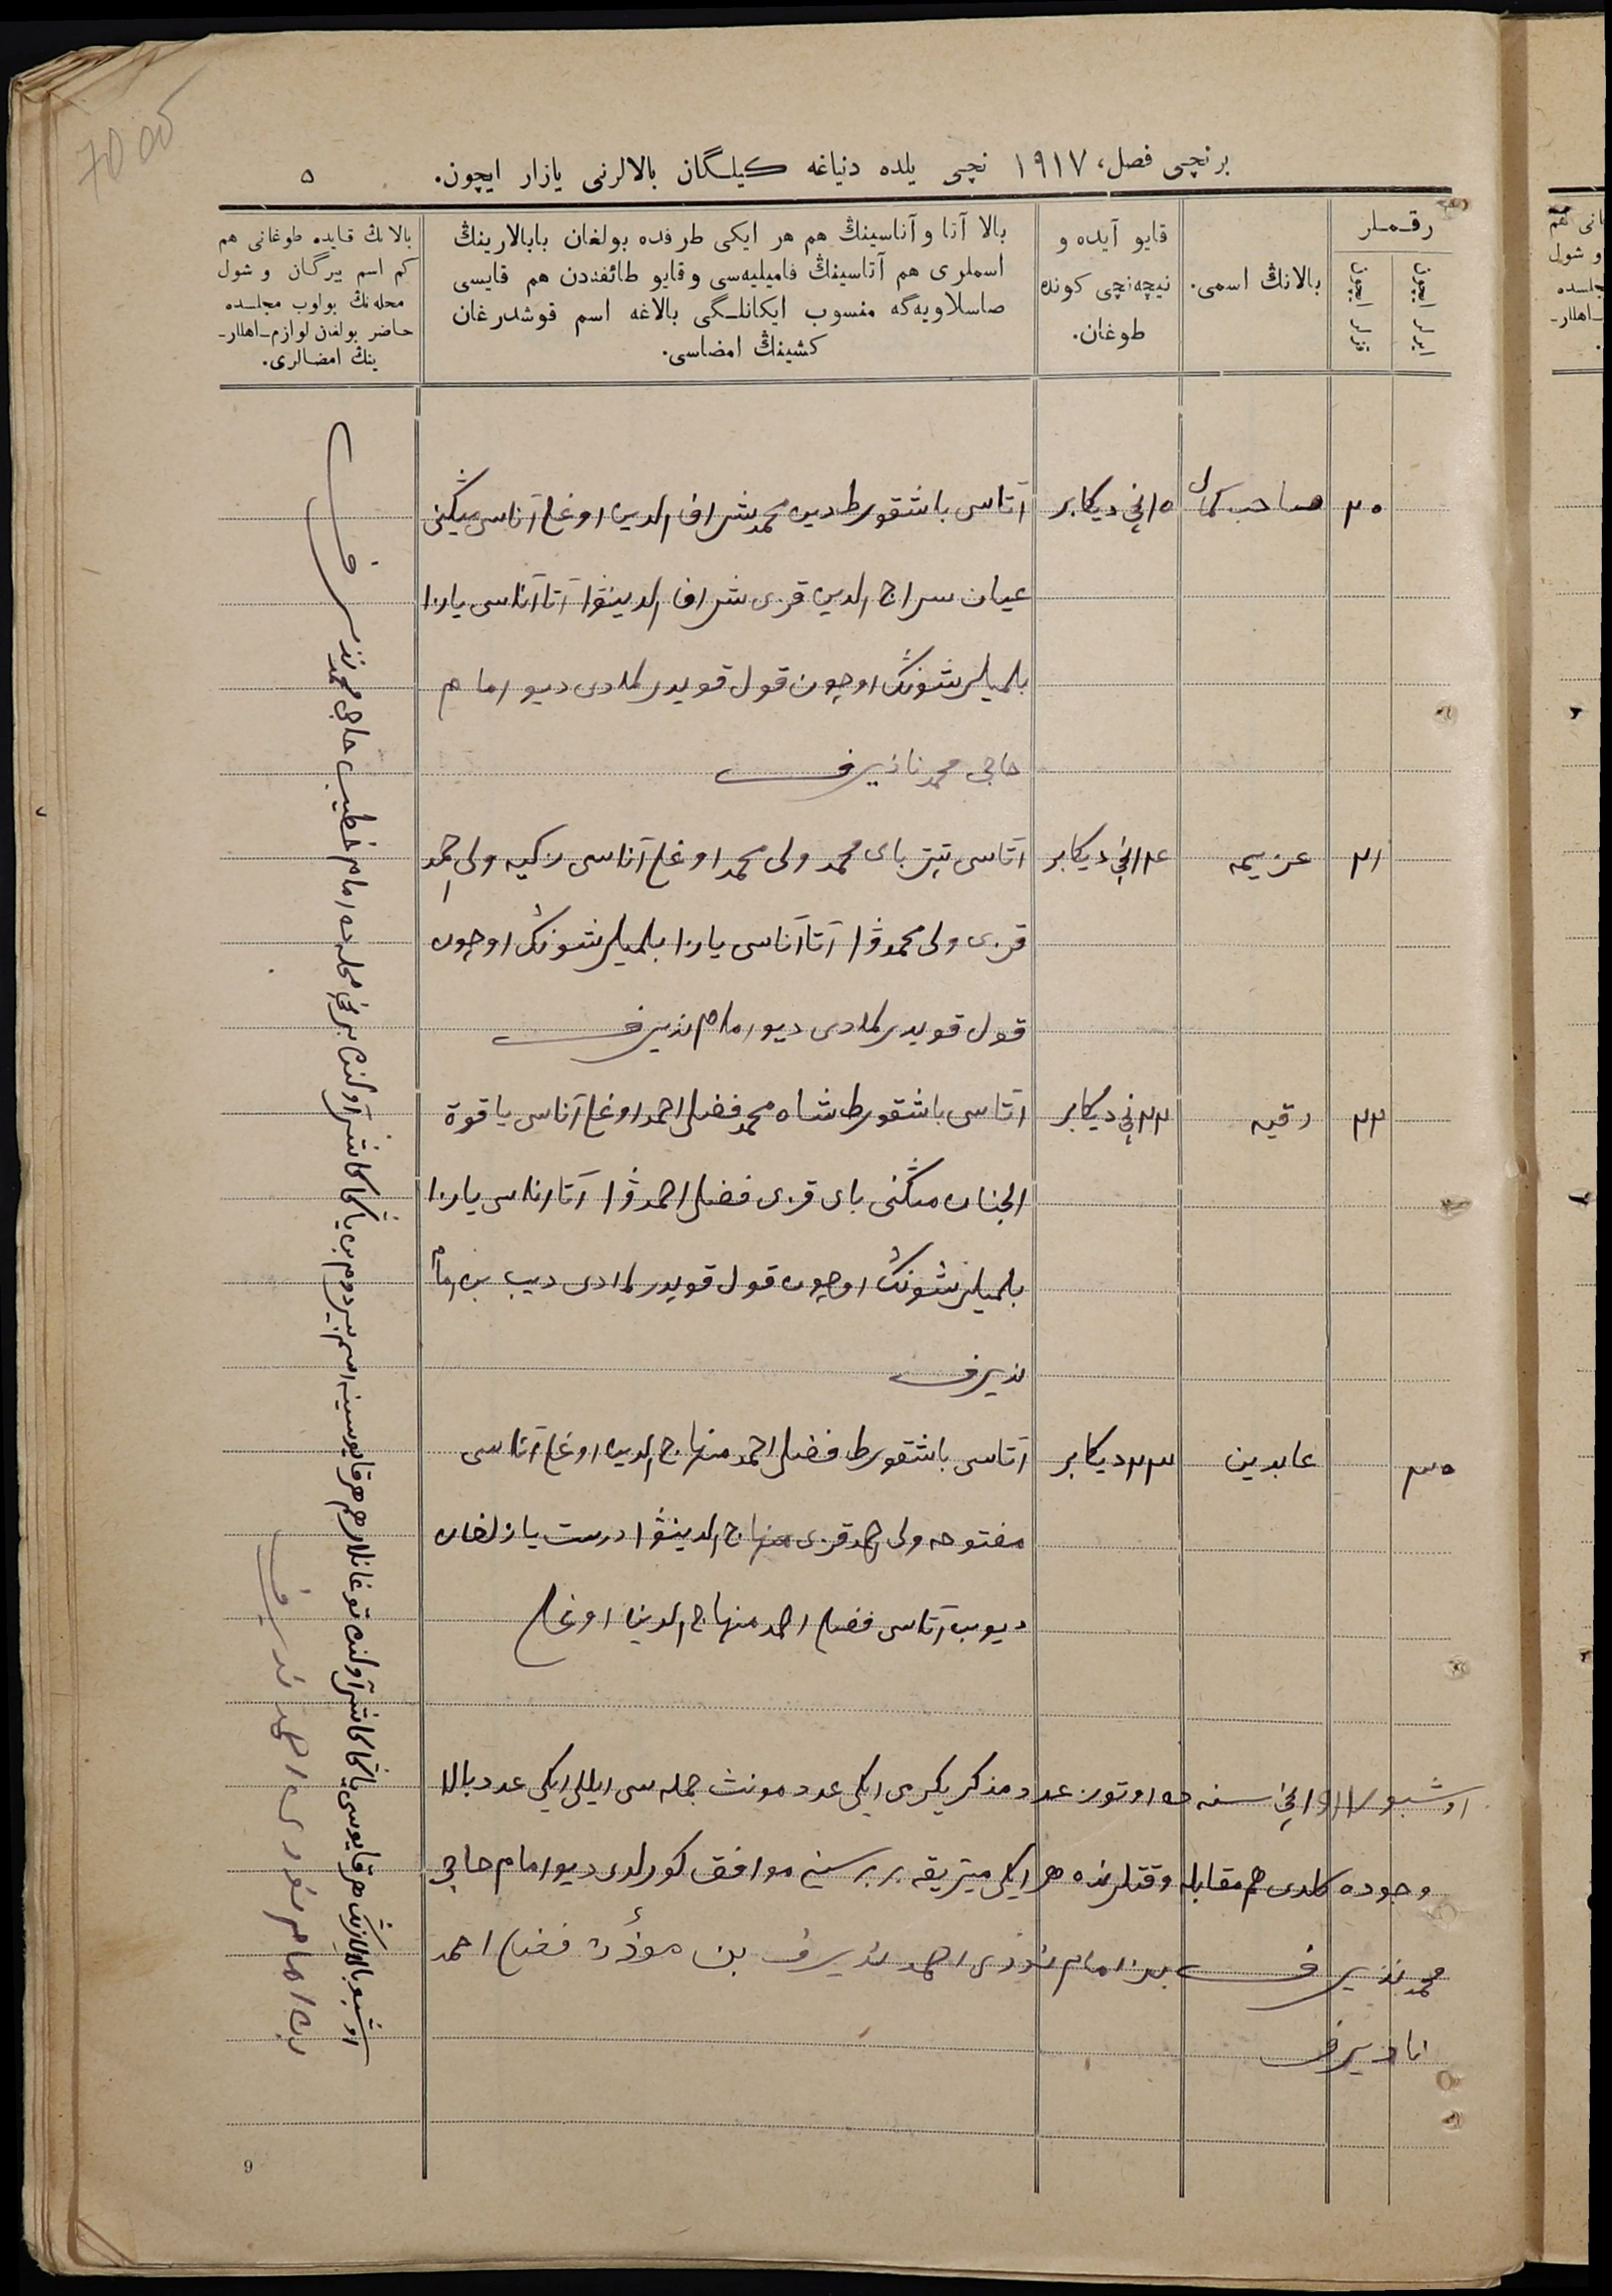 7000
برنچی فصل، ۱۹۱۷ نچی يلده دنياغه كيلگان بالالرنی يازار ايچون.
۵
رقملر
ايرلر ايچون
قزلر ايچون
بالانڭ اسمی.
قايو آيده و
نيچه‌نچی كونده
طوغان.
بالا آتا و آناسينڭ هم هر ايكی طرفده بولغان بابالارينڭ
اسملری هم آتاسينڭ فاميليه‌سی و قايو طائفه‌دن هم قايسی
صاسلاويه‌گه منسوب ايكانلگی بالاغه اسم قوشدرغان
كشينڭ امضاسی.
بالانڭ قايده طوغانی هم
كم اسم بيرگان و شول
محله‌نڭ بولوب مجلسده
حاضر بولغان لوازم اهللر
ينڭ امضالری.
۲۰
صاحب كمال
۱۵نچی ديكابر
آتاسی باشقورط دين محمد شراف الدين اوغلی آناسی مينگنی
عيان سراج الدين قزی شراف الدينوا آتا آناسی يازا
بلميلر شونڭ اوچون قول قويدرلمادی ديو امام
حاجی محمد ناذيرف
۲۱
عزيمه
۲۴نچی ديكابر
آتاسی تيپتر بای محمد ولی محمد اوغلی آناسی زكيه ولی احمد
قزی ولی محمدوا آتا آناسی يازا بلميلر شونڭ اوچون
قول قويدرلمادی ديو امام نذيرف
۲۲
رقيه
۲۲نچی ديكابر
آتاسی باشقورط شاه محمد فضل احمد اوغلی آناسی ياقوة
الجنان مينگنی بای قزی فضل احمدوا آتا اناسی يازا
بلميلر شونڭ اوچون قول قويدرلمادی ديب بن امام
نذيرف
۳۰
عابدين
۲۳ ديكابر
آتاسی باشقورط فضل احمد منهاج الدين اوغلی آناسی
مفتوحه ولی احمد قزی منهاج الدينوا درست يازلغان
ديوب آتاسی فضل احمد منهاج الدين اوغلی
اوشبو ۱۹۱۷نچی سنه ده اوتوز عدد مذكر يكرمی ايكی عدد مونث جمله سی ايللی ايكی عدد بالا
وجوده كلدی هم مقابله وقتلرنده هر ايكی ميتريقه بر برسينه موافق كورلدی ديو امام حاجی
محمد نذيرف بن امام نوری احمد نذيرف بن مؤذن فضل احمد
اوشبو بالالارنڭ هر قايوسی
توغانلار هم هر قايوسينه اسم بيردوم بن
امام خطيب حاجی محمد نذيرف
بن امام نوری احمد نذيرف
9